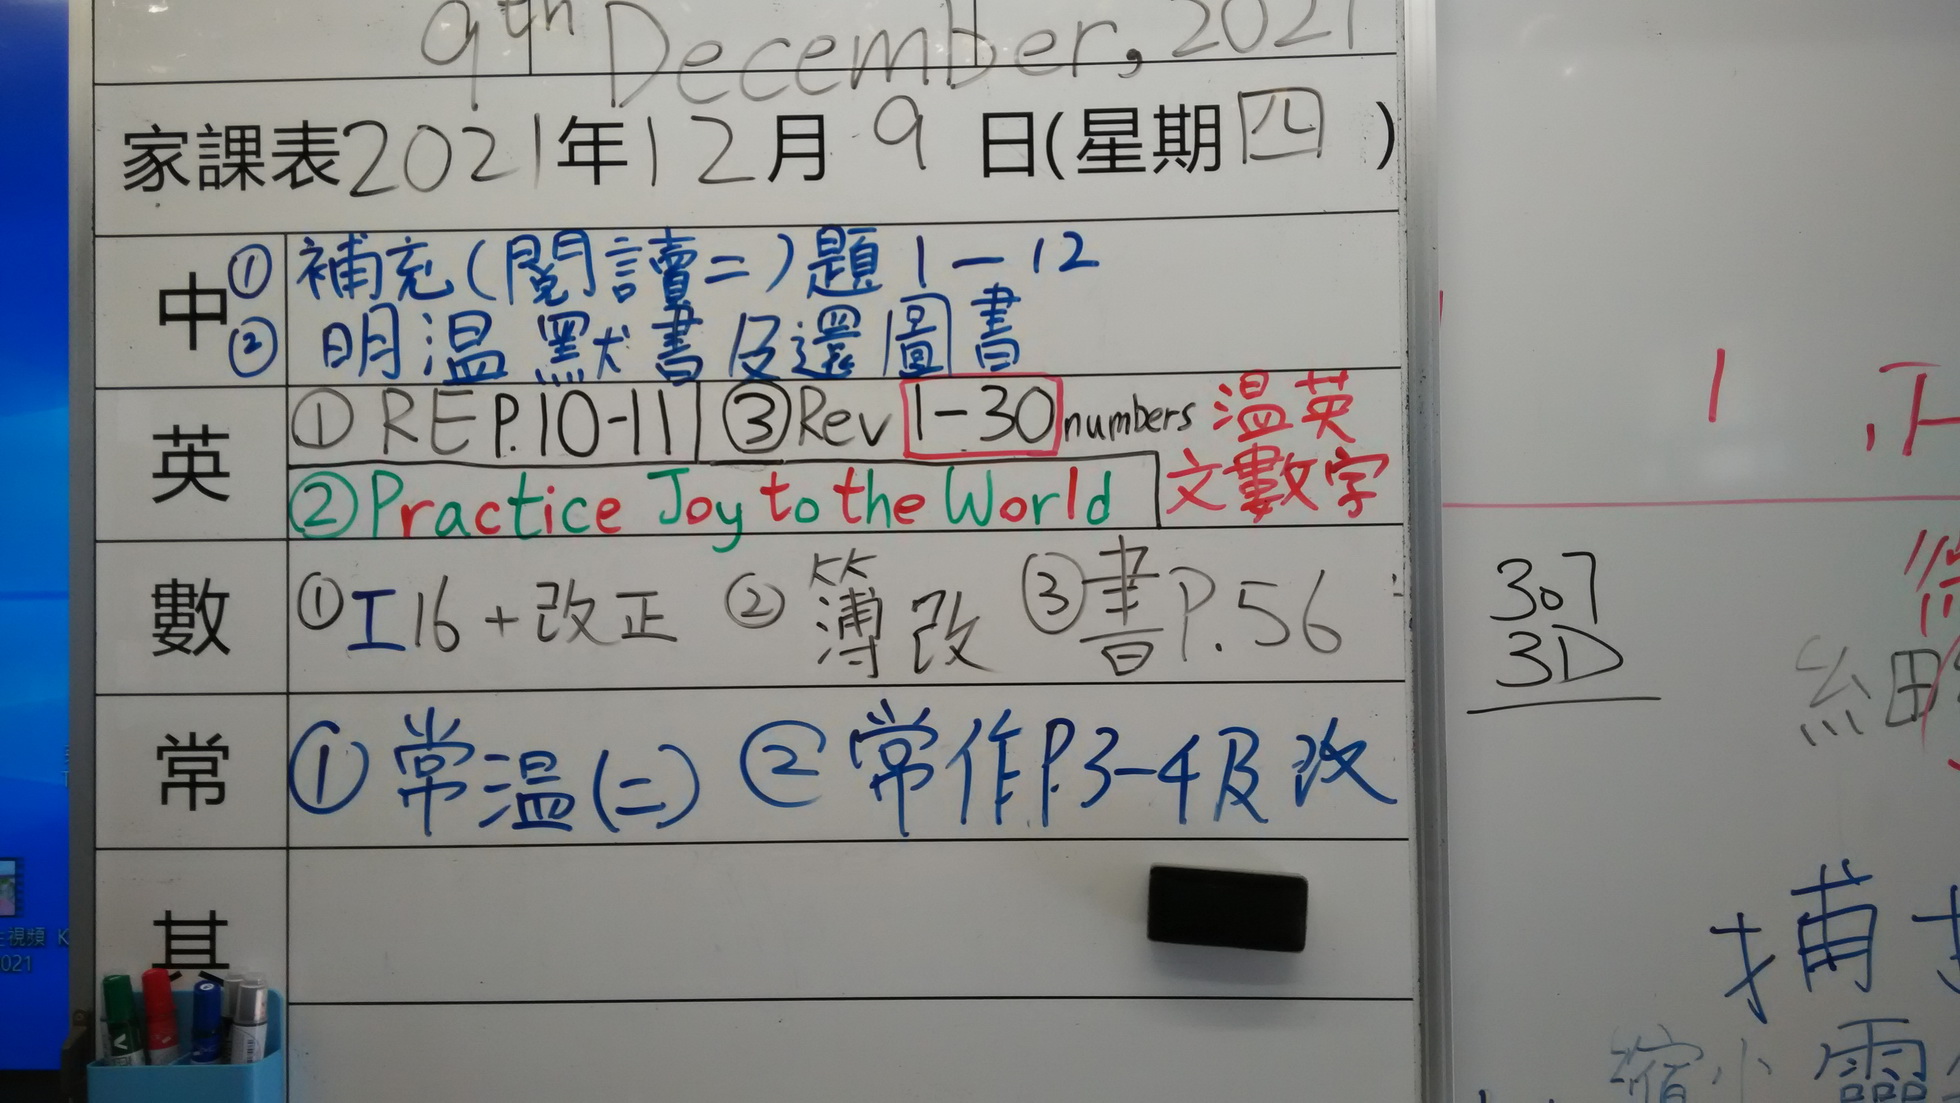 9th December, 2021
家課表2021年12月9日(星期四)
中
①補充(閱讀二)題1-12
②明溫默書及還圖書
英
①REP.10-11 ③Rev 1-30 numbers 溫英文數字
②Practice Joy to the World
數
①工16+改正 ②簿改 ③書P.56
常
①常溫(二) ②常作P.3-4及改
其
307
3D
細
捕
縮小
靈
視頻 K
021